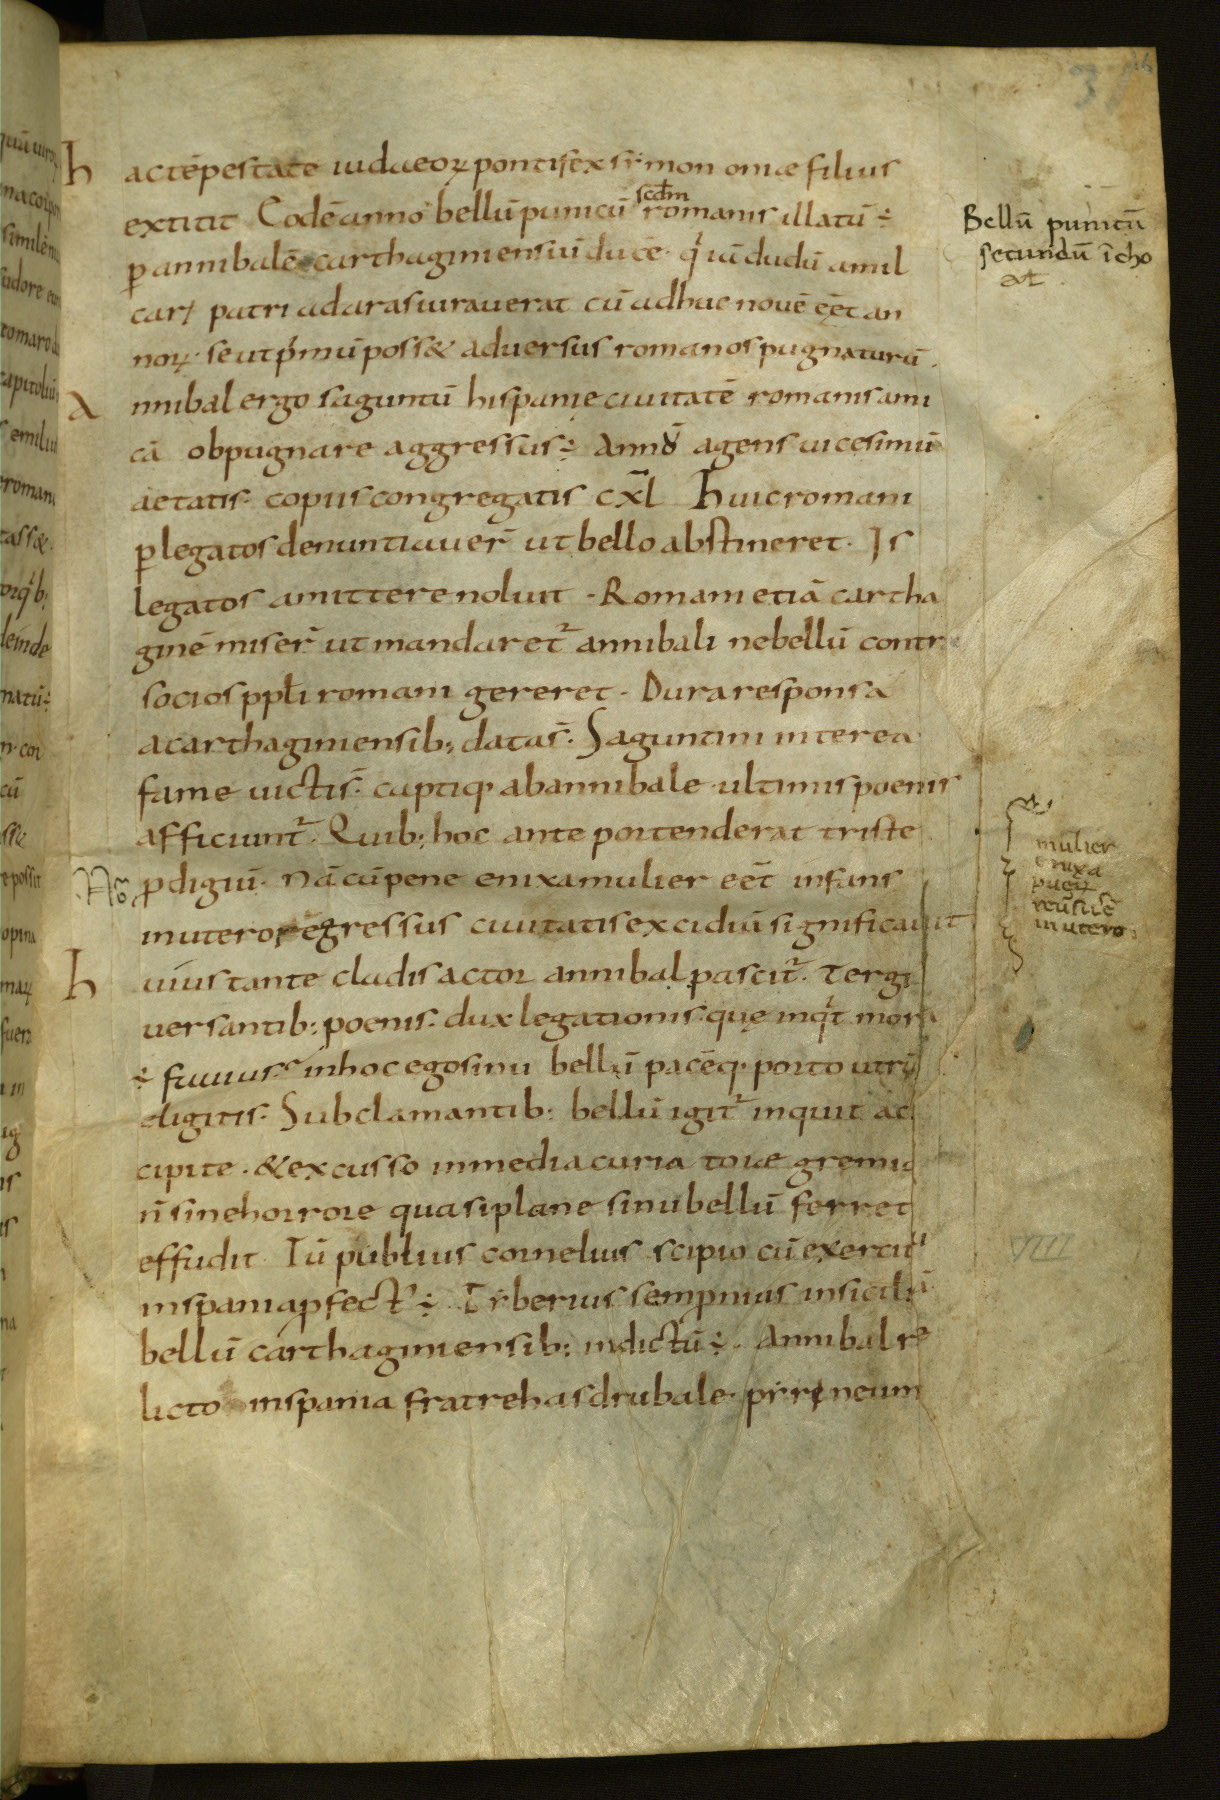 hac tēpestate iudaeoꝝ pontifex simon oniae filius
extitit Eodē anno bellū punicū scdm romanis illatū ÷
ꝑ annibalē carthaginensiū ducē · q' iā dudū amil
cari patri ad aras iuraverat cū adhuc novē eēt an
noꝝ · se ut p'mū poss& adversus romanos pugnaturū ·
Annibal ergo saguntū hispanie civitatē romanis ami
cā obpugnare aggressus ÷ Annū agens vicesimū
aetatis · copiis congregatis cxl Huic romani
ꝑ legatos denuntiaver̄ ut bello abstineret · Is
legatos amittere noluit · Romani etiā cartha
ginē miser̄ ut mandaret' annibali ne bellū contr
socios ppłi romani gereret · Dura responsa
a carthaginiensib; data s̄ · Saguntini interea
fame victi s̄ captiq· ab annibale · ultimis poenis
afficiunt' · Quib; hoc ante portenderat triste
ꝓdigiū · nā cū pene enixa mulier eēt infans
in utero regressus civitatis excidiū significavit
Huius tante cladis actor annibal pascit' · Tergi
versantib; poenis · dux legationis · quę inq't mora
÷ fuuius inhoc ego sinu bellū pacēq· porto utrū
eligitis · Subclamantib; bellū igit' inquit ac
cipite · & excusso in media curia togae gremio
n̄ sine horrore quasi plane sinu bellū ferret
effudit Tū publius cornelius scipio cū exercitu
inspania ꝓfect' ÷ Tyberius sempnius in sicilia
bellū carthaginiensib; indictū ÷ · Annibal re
licto inspania fratre hasdrubale · pirineum
Bellū punicū
secundū īcho
at
mulier
enixa
pueꝝ
in utero
VIII